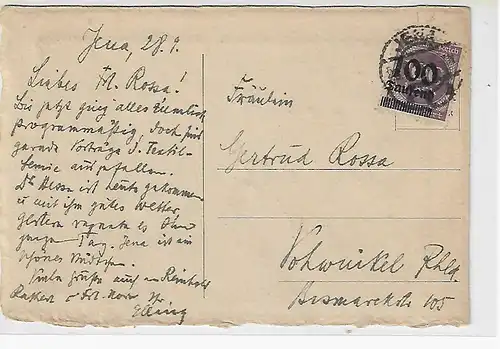 Jena, 28.9.
Liebes Frl. Rossa!
Bis jetzt ging alles ziemlich
programmäßig, doch sind
gerade Vorträge d. Textil-
Chemie ausgefallen.
Dr Hessa ist heute gekommen
u mit ihm gutes Wetter,
gestern regnete es den
ganzen Tag. Jena ist ein
schönes Nestchen.
Viele Grüße auch an Reinhold
Frl.
Ihr
100
Tausend
Fräulein
Gertrud Rossa
Vohwinkel Rhld.
Bismarckstr 105